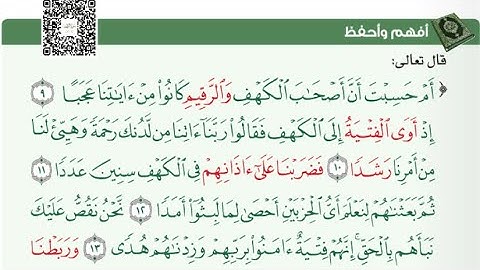 أفهم وأحفظ
قال تعالى:
﴿ أَمْ حَسِبْتَ أَنَّ أَصْحَٰبَ ٱلْكَهْفِ وَٱلرَّقِيمِ كَانُوا۟ مِنْ ءَايَٰتِنَا عَجَبًا ٩
إِذْ أَوَى ٱلْفِتْيَةُ إِلَى ٱلْكَهْفِ فَقَالُوا۟ رَبَّنَآ ءَاتِنَا مِن لَّدُنكَ رَحْمَةً وَهَيِّئْ لَنَا
مِنْ أَمْرِنَا رَشَدًا ١٠ فَضَرَبْنَا عَلَىٰٓ ءَاذَانِهِمْ فِى ٱلْكَهْفِ سِنِينَ عَدَدًا ١١
ثُمَّ بَعَثْنَٰهُمْ لِنَعْلَمَ أَىُّ ٱلْحِزْبَيْنِ أَحْصَىٰ لِمَا لَبِثُوٓا۟ أَمَدًا ١٢ نَّحْنُ نَقُصُّ عَلَيْكَ
نَبَأَهُم بِٱلْحَقِّ ۚ إِنَّهُمْ فِتْيَةٌ ءَامَنُوا۟ بِرَبِّهِمْ وَزِدْنَٰهُمْ هُدًى ١٣ وَرَبَطْنَا